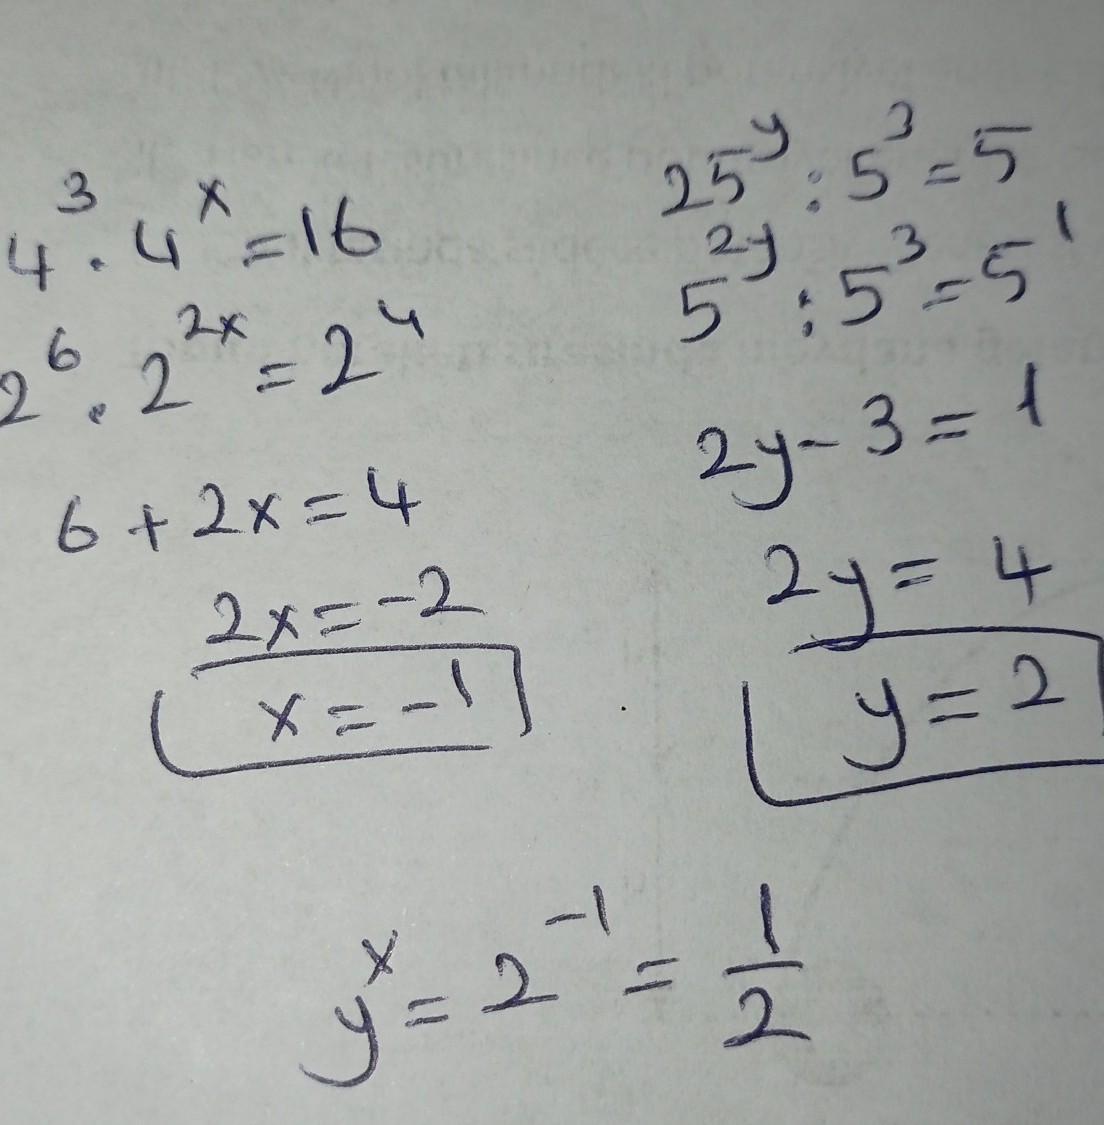 4³ · 4ˣ = 16
2⁶ · 2²ˣ = 2⁴
6 + 2x = 4
2x = -2
x = -1
25ʸ : 5³ = 5
5²ʸ : 5³ = 5¹
2y - 3 = 1
2y = 4
y = 2
yˣ = 2⁻¹ = 1/2